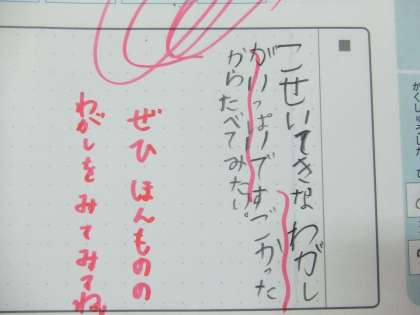 こせいてきなわがし
がいっぱいですごかった
からたべてみたい。
ぜひほんものの
わがしをみてみてね。